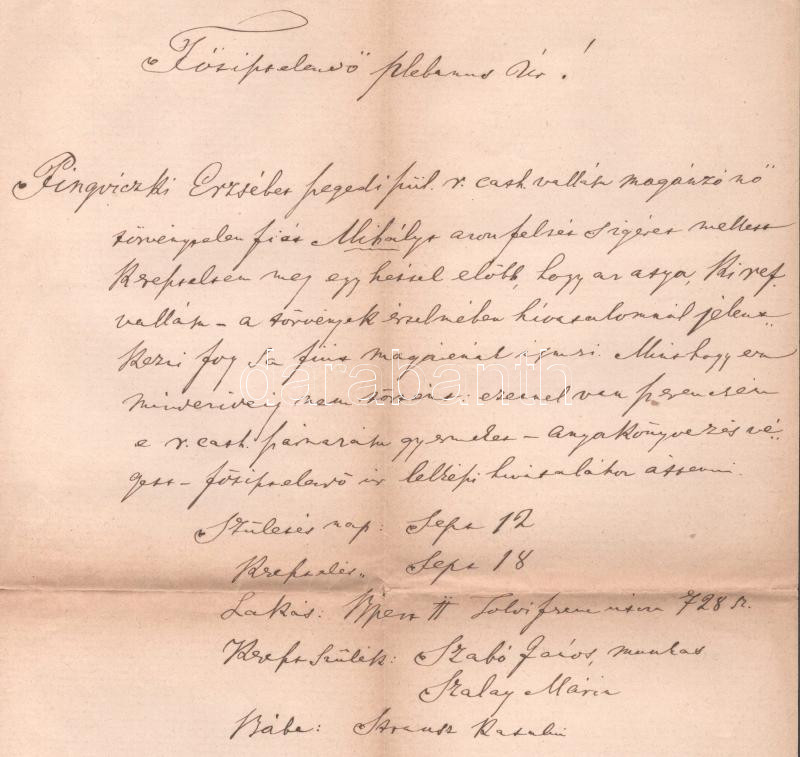 Főtisztelendő plebanus Úr!
Pingviczki Erzsébet szegedi szül. r. cath. vallású magánzónő
törvénytelen fiát Mihályt azon feltétes igéret mellett
kereszteltem meg egy héttel előbb, hogy az atya, ki ref.
vallású – a törvények értelmében hivatalomnál jelent-
kezni fog s a fiút magáénak ismeri. Minthogy ez
mindezideig nem történt: ezennel van szerencsém
a r. cath. származású gyermeket – anyakönyvezés vé-
gett – főtisztelendő úr lelkészi hivatalához áttenni.
Születés nap: Sept 12
Keresztelés „ Sept 18
Lakás: Bpest II 728 sz.
Kereszt Szülék: Szabó János, munkás
Szalay Mária
Bába: Strausz Rozália
darabanth